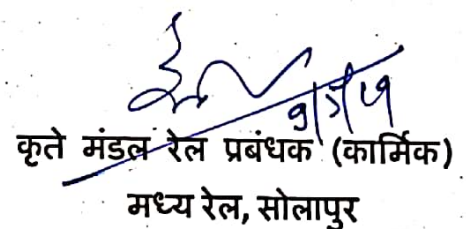 कृते मंडल रेल प्रबंधक (कार्मिक)
मध्य रेल, सोलापुर